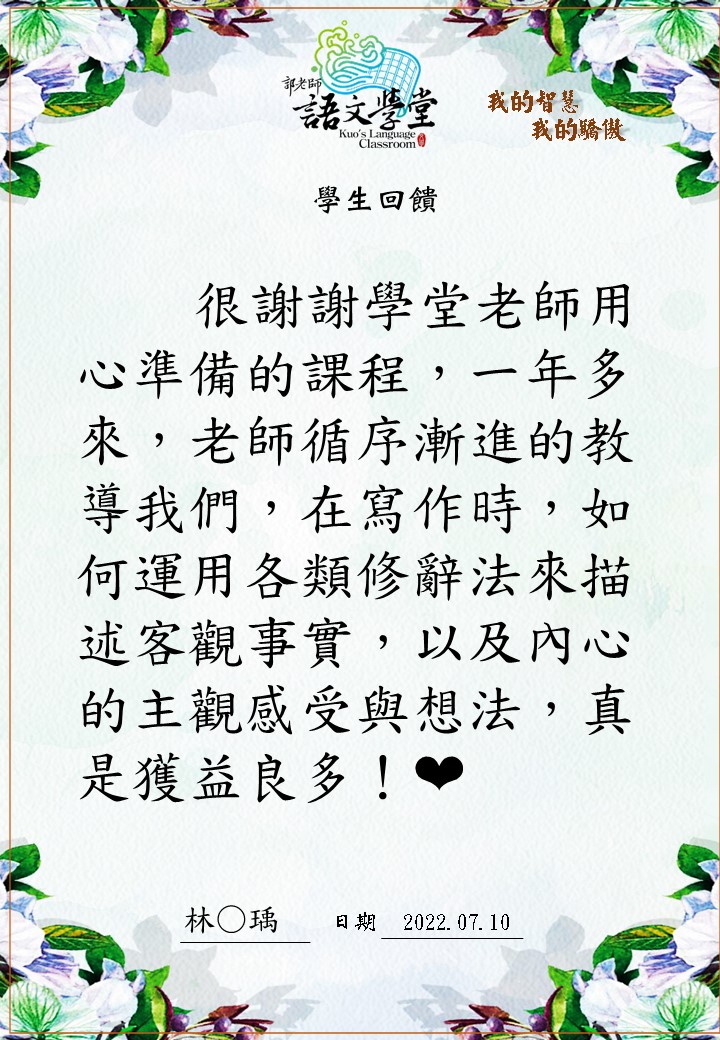 郭老師
語文學堂
Kuo's Language
Classroom
我的智慧
我的驕傲
學生回饋
很謝謝學堂老師用
心準備的課程，一年多
來，老師循序漸進的教
導我們，在寫作時，如
何運用各類修辭法來描
述客觀事實，以及內心
的主觀感受與想法，真
是獲益良多！❤
林○瑀 日期 2022.07.10